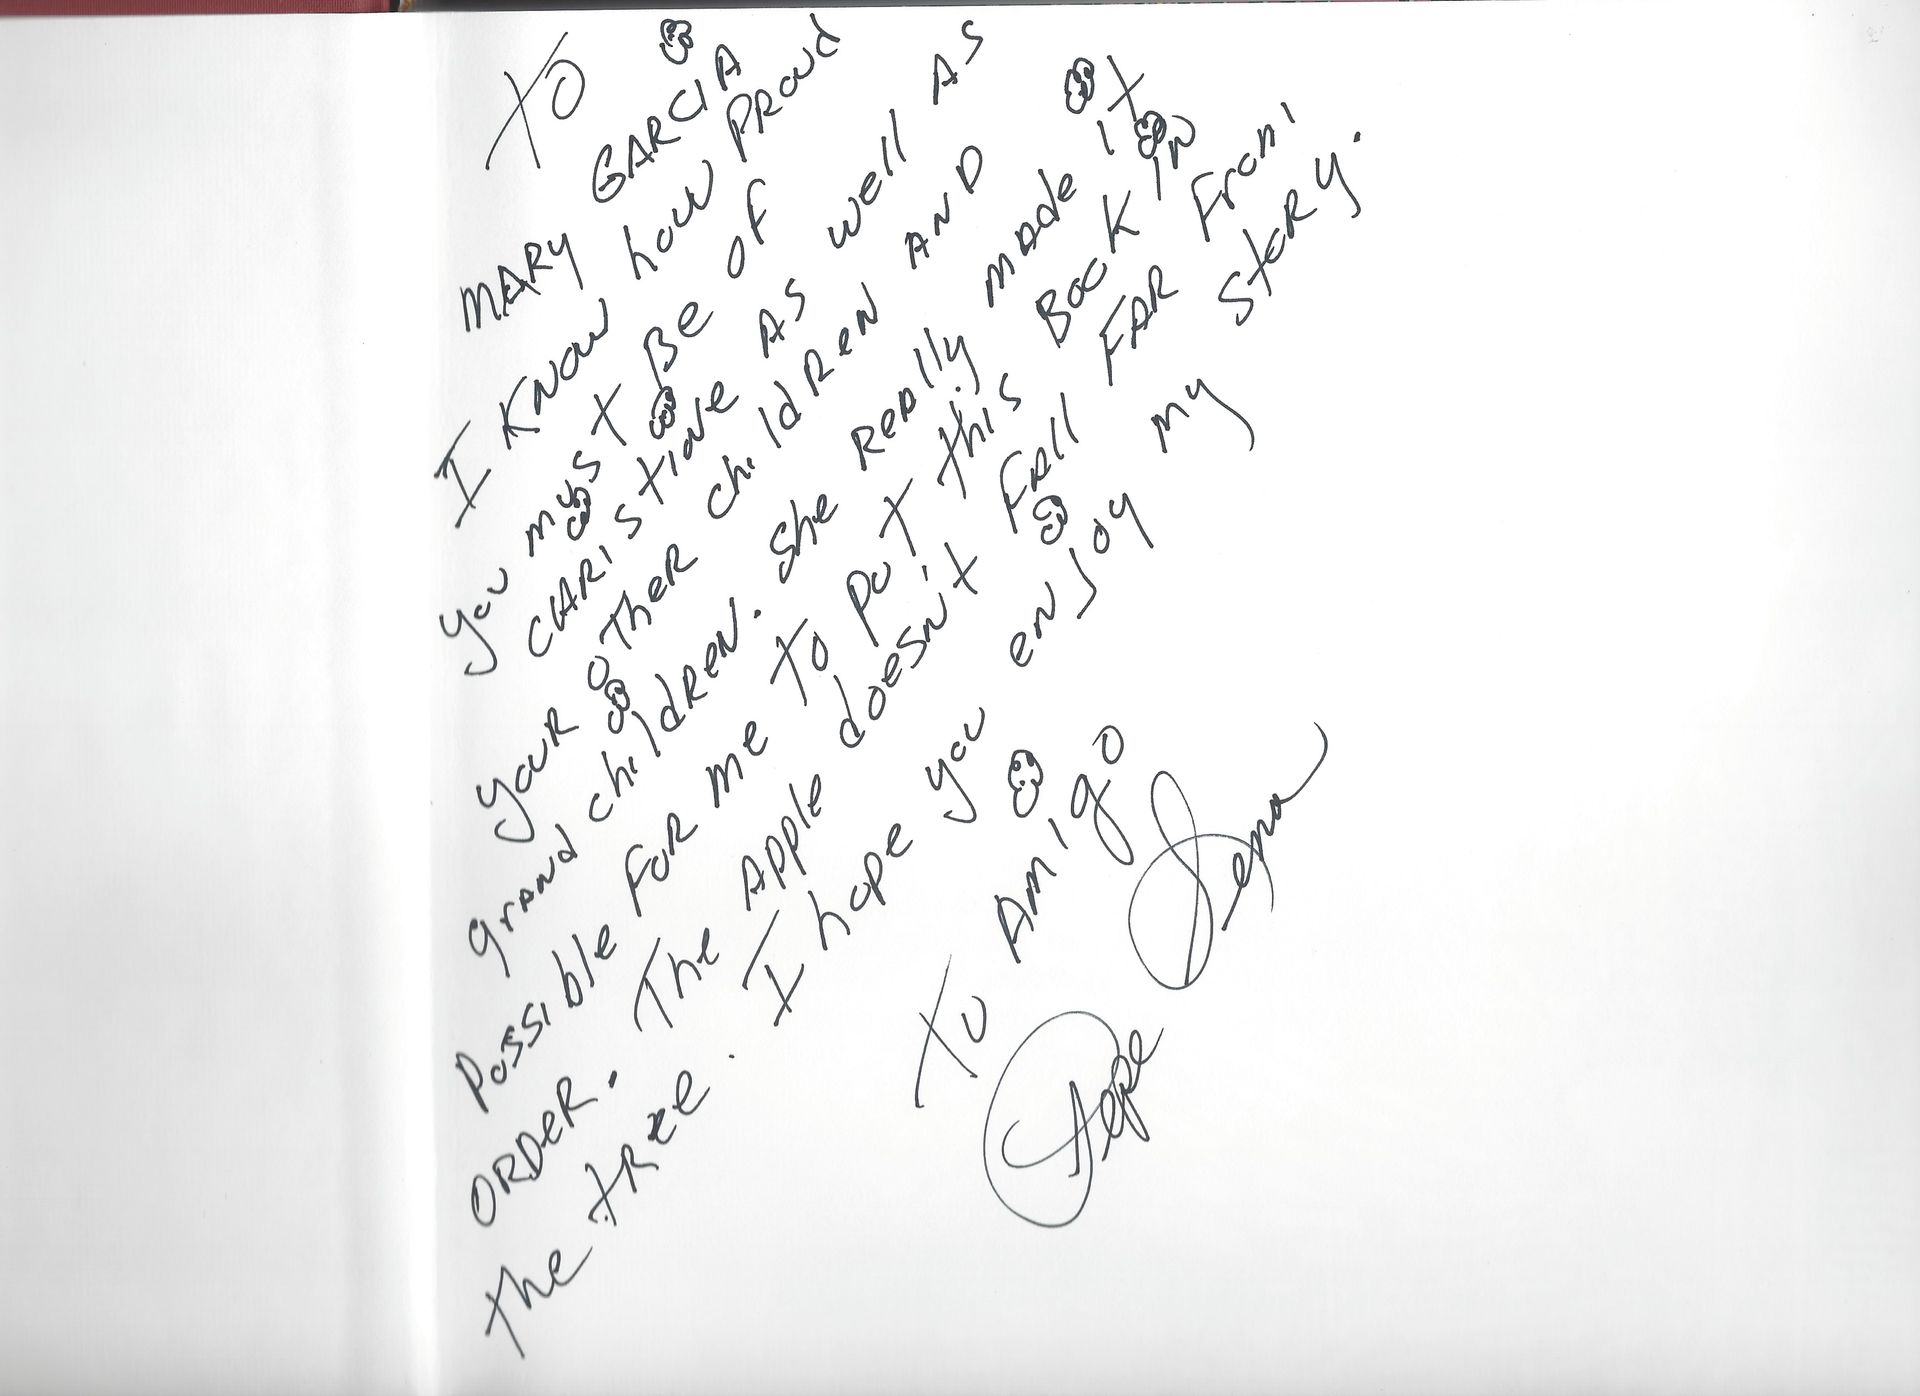 TO
MARY GARCIA
I KNOW how PROUD
you must Be of
CHRISTINE AS well AS
your other children AND
grand children. She REALLY made it
possible for me to put this Book in
ORDER. The Apple doesn't FAll FAR From
the tree. I hope you enjoy my story.
TU AMigo
Pepe Serna